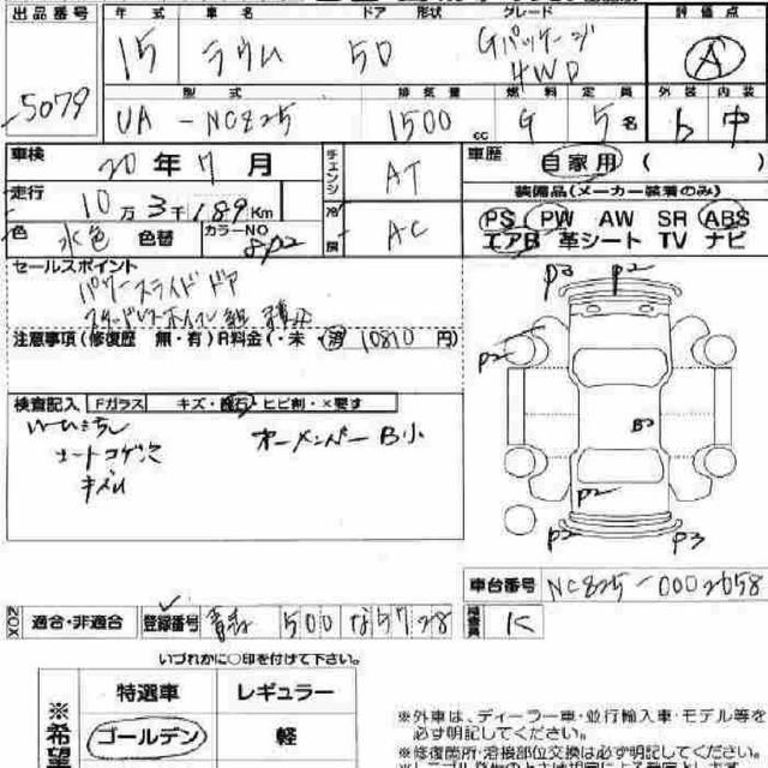 出品番号 年式 車名 ドア 形状 グレード 評価点
5079 15 ラウム 5D Gパッケージ 4WD A
型式 排気量 燃料 定員 外装 内装
UA-NCZ25 1500 cc G 5名 b 中
車検 20年7月 チェンジ AT 車歴 自家用 ( )
走行 10万3千189Km 装備品(メーカー装着のみ)
色 水色 色替 カラーNO AC PS PW AW SR ABS
エアB 革シート TV ナビ
セールスポイント
パワースライドドア
注意事項(修復歴 無・有)R料金(・未・済)10810円)
検査記入 Fガラス キズ・飛石・ヒビ割・×要す
シートコゲ穴 オーメンバーB小
キズU
P3 P2
P2
B2
P2
P2 P3
車台番号 NCZ25-0002658
NOX 適合・非適合 登録番号 青森 500 な57-28 検査員 K
いづれかに○印を付けて下さい。
※希望 特選車 レギュラー
ゴールデン 軽
※外車は、ディーラー車・並行輸入車・モデル等を
必ず明記してください。
※修復箇所・溶接部位交換は必ず明記してください。